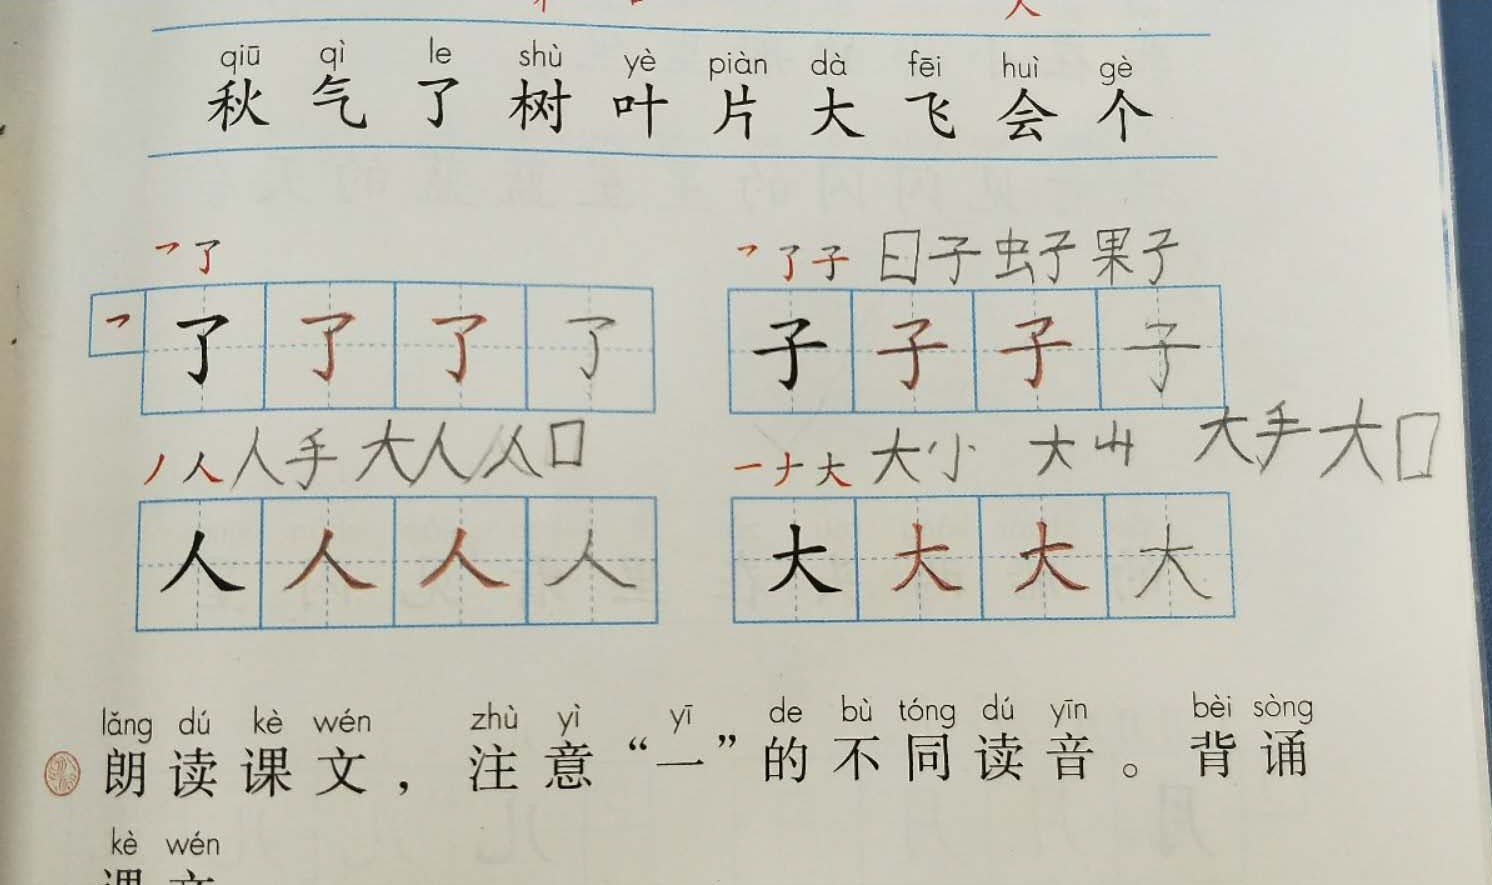 qiū qì le shù yè piàn dà fēi huì gè
秋 气 了 树 叶 片 大 飞 会 个
乛 了
乛 了 子 日子 虫子 果子
乛 了 了 了 了
子 子 子 子
丿 人 人手 大人 人口
一 ナ 大 大小 大山 大手 大口
人 人 人 人
大 大 大 大
lǎng dú kè wén zhù yì yī de bù tóng dú yīn bèi sòng
朗读课文，注意“一”的不同读音。背诵
kè wén
课文